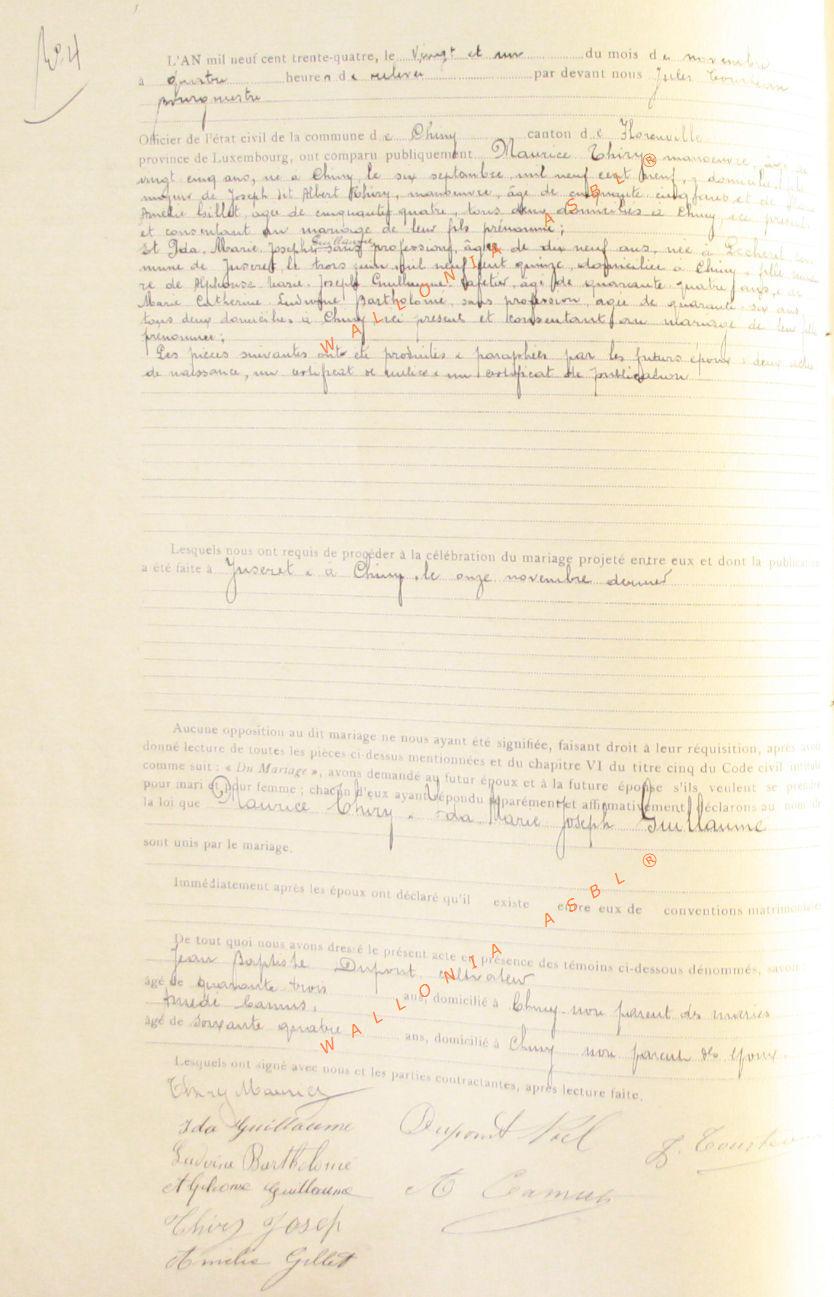 N° 4
L'AN mil neuf cent trente-quatre, le vingt et un du mois de novembre
à quatre heures de relevée par devant nous Jules
Bourgmestre
Officier de l'état civil de la commune de Chiny canton de Florenville
province de Luxembourg, ont comparu publiquement Maurice Thiry manoeuvre, âgé de
vingt cinq ans, né à Chiny le six septembre mil neuf cent neuf, y domicilié
majeur de Joseph dit Albert Thiry, manoeuvre, âgé de cinquante cinq ans et de
Amélie Gillet, agée de cinquante quatre, tous deux domiciliés à Chiny, ici présents
et consentant au mariage de leur fils prénommé;
Et Ida Marie Joseph Guillaume sans profession, âgée de dix neuf ans, née à commune
de Juseret, le trois juin mil neuf cent quinze, domiciliée à Chiny, fille mineure
de Alphonse Marie Joseph Guillaume cafetier, âgé de quarante quatre ans, et de
Marie Catherine Ludivine Bartholomé, sans profession, agée de quarante six ans
tous deux domiciliés à Chiny ici présent et consentant au mariage de leur fille
prénommée;
Les pièces suivantes ont été produites & paraphées par les futurs époux : deux actes
de naissance, un certificat de milice & un certificat de publication
Lesquels nous ont requis de procéder à la célébration du mariage projeté entre eux et dont la publication
a été faite à Juseret & à Chiny, le onze novembre dernier
Aucune opposition au dit mariage ne nous ayant été signifiée, faisant droit à leur réquisition, après avoir
donné lecture de toutes les pièces ci-dessus mentionnées et du chapitre VI du titre cinq du Code civil intitulé
comme suit : « Du Mariage », avons demandé au futur époux et à la future épouse s'ils veulent se prendre
pour mari et pour femme ; chacun d'eux ayant répondu séparément et affirmativement, déclarons au nom de
la loi que Maurice Thiry & Ida Marie Joseph Guillaume
sont unis par le mariage.
Immédiatement après les époux ont déclaré qu'il existe entre eux de conventions matrimoniales
De tout quoi nous avons dressé le présent acte en présence des témoins ci-dessous dénommés, savoir
Jean Baptiste Dupont, cultivateur
âgé de quarante trois ans, domicilié à Chiny non parent des mariés
Camus,
âgé de soixante quatre ans, domicilié à Chiny non parent des époux.
Lesquels ont signé avec nous et les parties contractantes, après lecture faite.
Thiry Maurice
Ida Guillaume
Dupont
Ludivine Bartholomé
Alphonse Guillaume
A Camus
Thiry Josep
Amélie Gillet
WALLONIA ASBL ®
WALLONIA ASBL ®